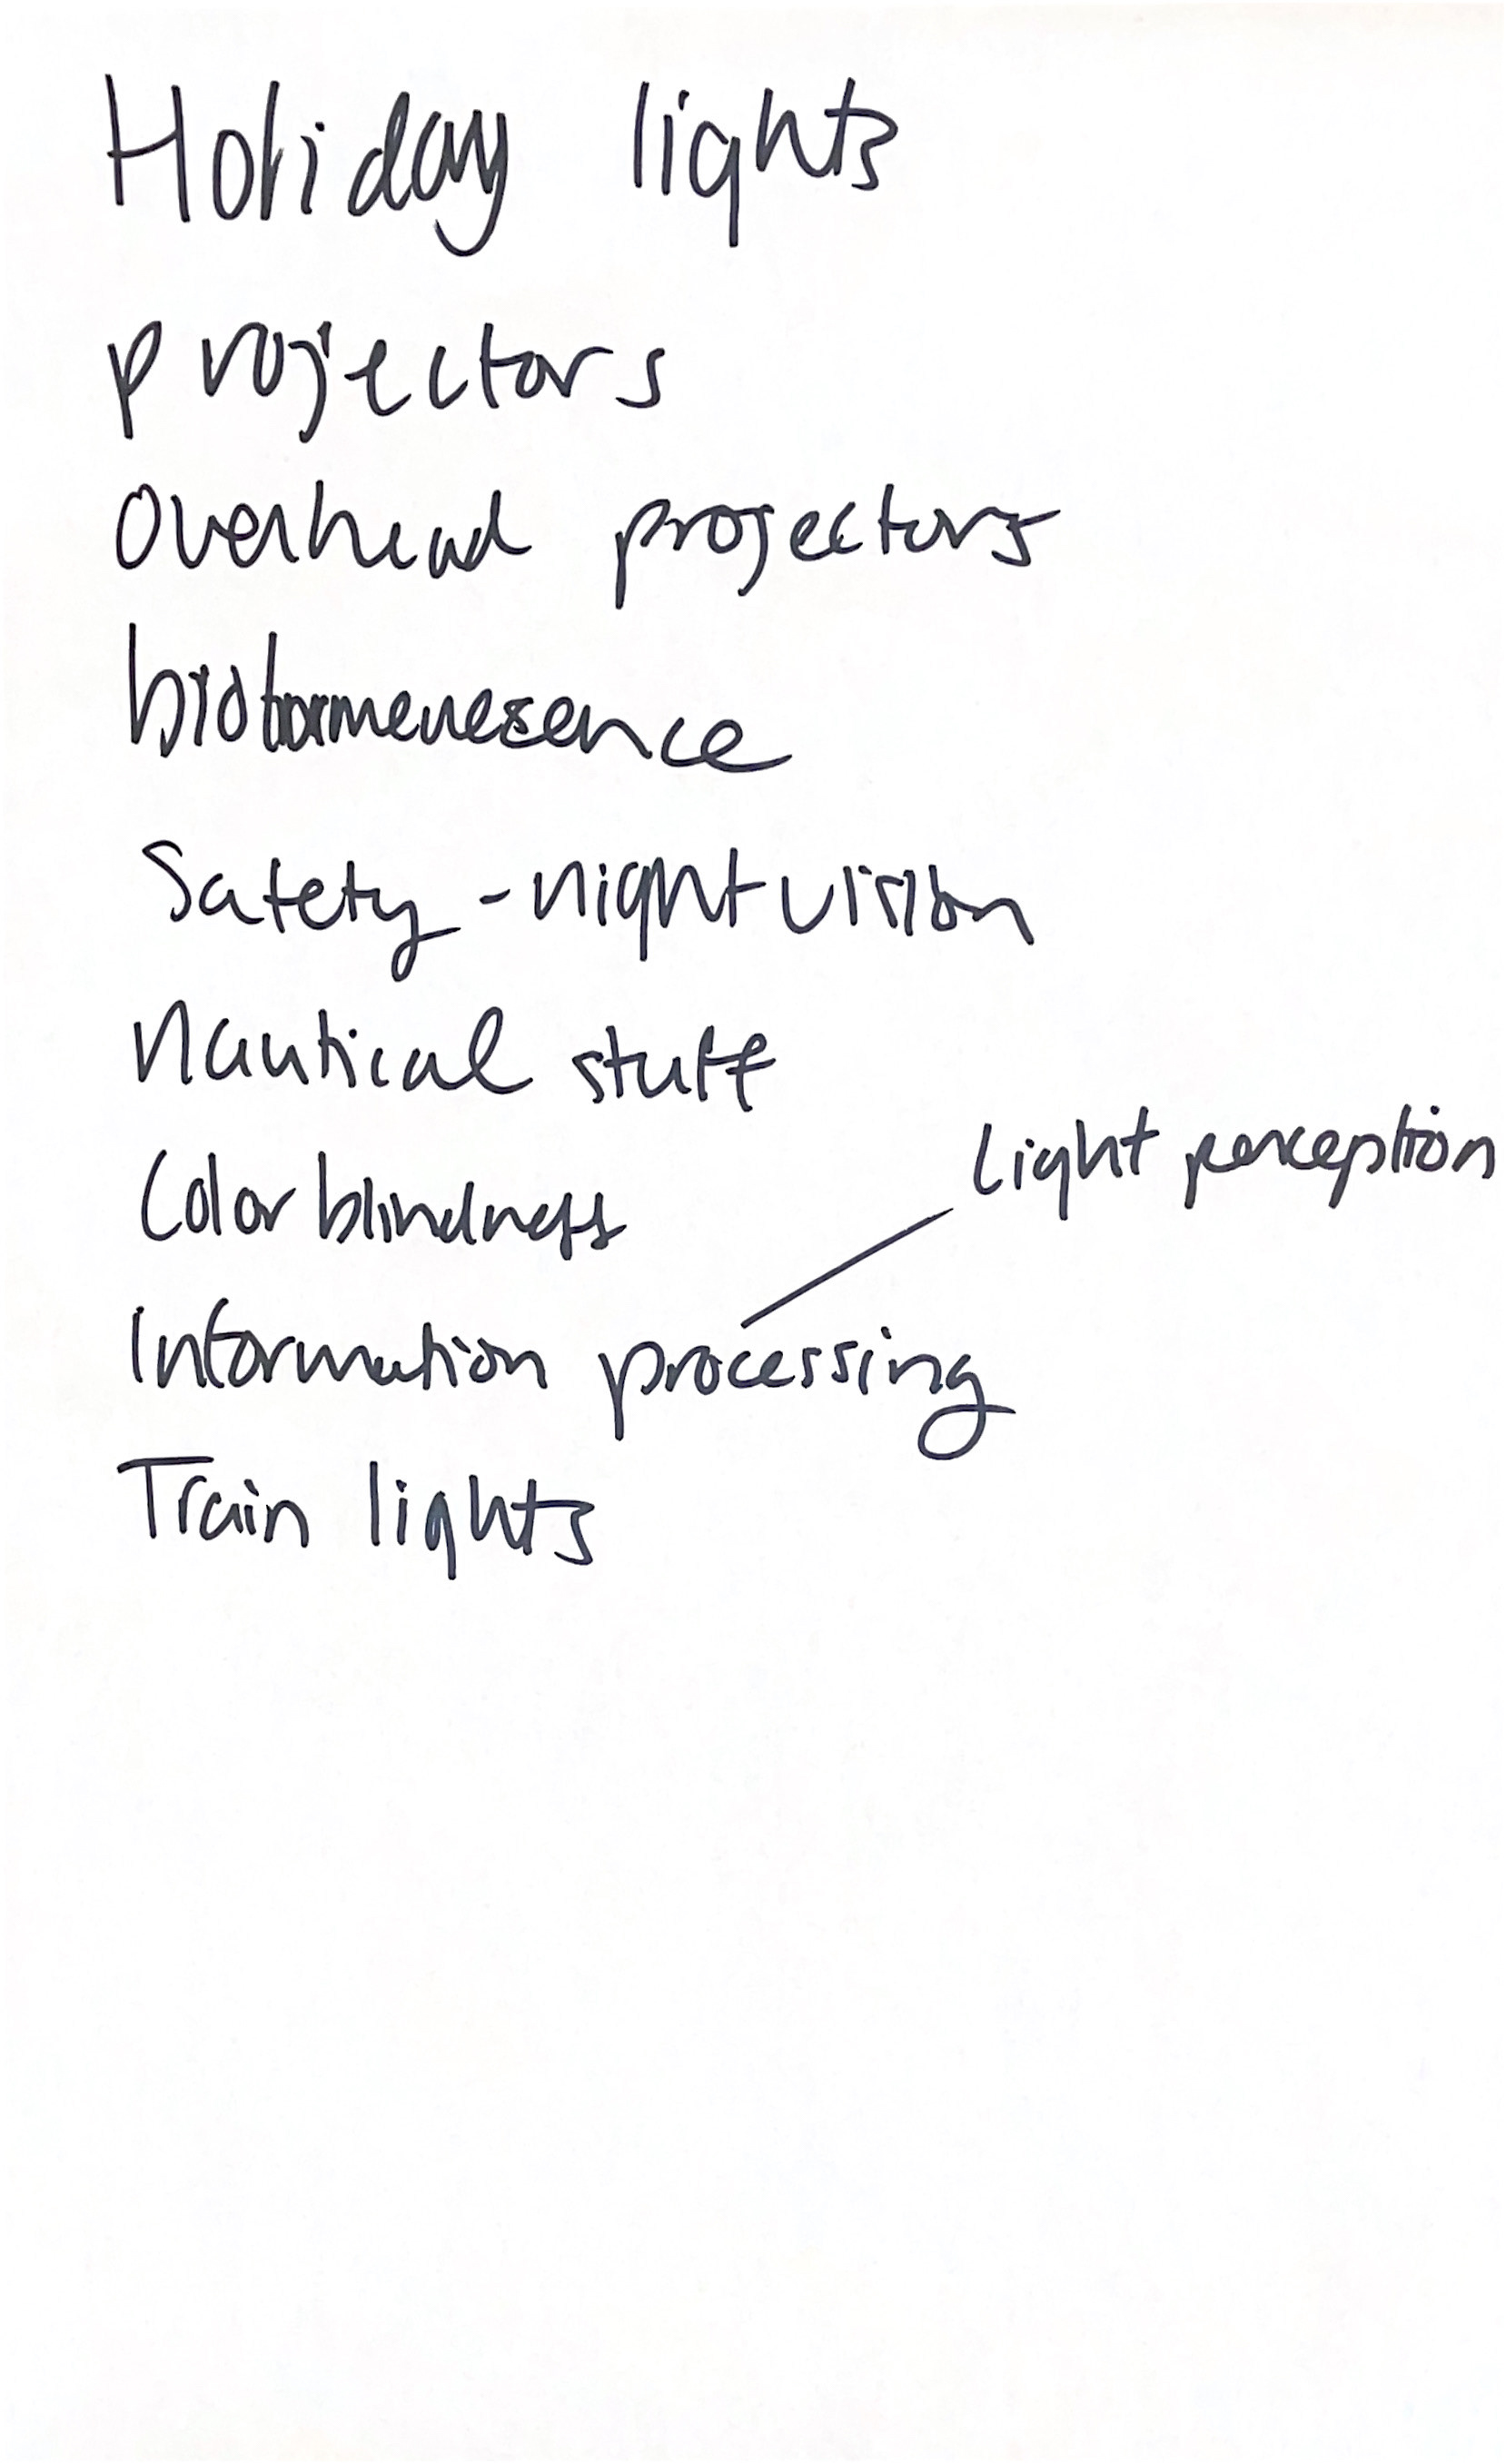 Holiday lights
projectors
Overhead projectors
Safety - night vision
Nautical stuff
Light perception
Color blindness
Information processing
Train lights